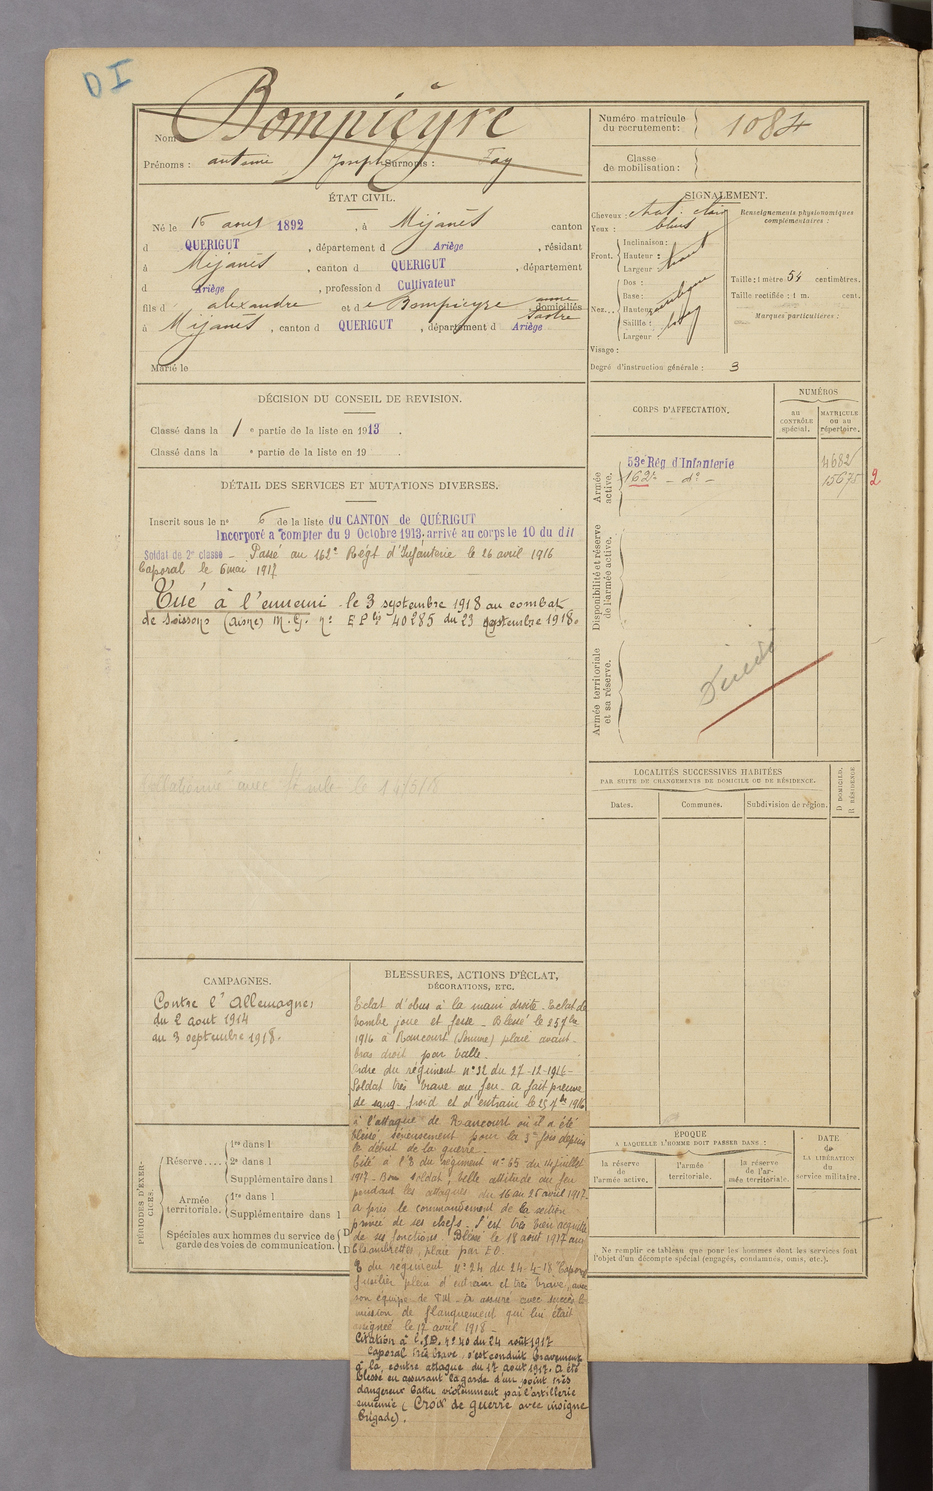 DI
Nom Bompieyre
Prénoms : antoine Joseph Surnoms : Fay
Numéro matricule
du recrutement : 1084
Classe
de mobilisation :
ÉTAT CIVIL.
Né le 16 aout 1892, à Mijanès canton
d QUERIGUT, département d Ariège, résidant
à Mijanès, canton d QUERIGUT, département
d Ariège, profession d Cultivateur
fils d alexandre et d e Bompieyre anne
domiciliés
à Mijanès, canton d QUERIGUT, département d Ariège
Marié le
SIGNALEMENT.
Cheveux : chat. clair
Yeux : bleus
Front. Inclinaison :
Hauteur : haut
Largeur :
Nez... Dos :
Base :
Hauteur
Saillie :
Largeur :
Visage :
Degré d'instruction générale : 3
Renseignements physionomiques
complémentaires :
Taille : 1 mètre 54 centimètres.
Taille rectifiée : 1 m. cent.
Marques particulières :
DÉCISION DU CONSEIL DE REVISION.
Classé dans la 1 e partie de la liste en 1913.
Classé dans la e partie de la liste en 19 .
DÉTAIL DES SERVICES ET MUTATIONS DIVERSES.
Inscrit sous le n° 6 de la liste du CANTON de QUÉRIGUT
Incorporé à compter du 9 Octobre 1913, arrivé au corps le 10 du dit
Soldat de 2e classe – Passé au 162e Régt d'Infanterie le 26 avril 1916
Caporal le 6 mai 1917
Tué à l'ennemi le 3 septembre 1918 au combat
de Soissons (aisne) M.G. n° 40285 du 23 septembre 1918.
CORPS D'AFFECTATION.
NUMÉROS
au
CONTRÔLE
spécial.
MATRICULE
ou au
répertoire.
Armée
active.
53e Rég. d'Infanterie 4682
162e – do – 15675 2
Disponibilité et réserve
de l'armée active.
Armée territoriale
et sa réserve.
LOCALITÉS SUCCESSIVES HABITÉES
PAR SUITE DE CHANGEMENTS DE DOMICILE OU DE RÉSIDENCE.
Dates.
Communes.
Subdivision de région.
D DOMICILE.
R RÉSIDENCE
CAMPAGNES.
Contre l'Allemagne :
du 2 aout 1914
au 3 septembre 1918.
BLESSURES, ACTIONS D'ÉCLAT,
DÉCORATIONS, ETC.
Eclat d'obus à la main droite. Eclat de
bombe joue et fesse – Blessé le 25 7bre
1916 à Rancourt (Somme) plaie avant-
bras droit par balle.
Ordre du régiment n° 32 du 27-12-1916 –
Soldat très brave au feu. a fait preuve
de sang-froid et d'entrain le 25 7bre 1916
à l'attaque de Rancourt où il a été
blessé sérieusement pour la 3e fois depuis
le début de la guerre.
Cité à l'O du régiment n° 65 du 14 juillet
1917 – Bon soldat, belle attitude au feu
pendant les attaques du 16 au 26 avril 1917
a pris le commandement de la section
privée de ses chefs. S'est très bien acquitté
de ses fonctions. Blessé le 18 aout 1917 aux
plaie par EO.
O du régiment n° 24 du 24-4-18 Caporal
fusilier plein d'entrain et très brave, avec
son équipe de FM – a assuré avec succès la
mission de flanquement qui lui était
assignée le 17 avril 1918 –
Citation à l'I.D. n° 40 du 24 août 1917
Caporal très brave, s'est conduit bravement
à la contre attaque du 17 aout 1917. a été
blessé en assurant la garde d'un point très
dangereux battu violemment par l'artillerie
ennemie (Croix de guerre avec insigne
Brigade).
PÉRIODES D'EXER-
CICES.
Réserve.... 1re dans l
2e dans l
Supplémentaire dans l
Armée
territoriale. 1re dans l
Supplémentaire dans l
Spéciales aux hommes du service de
garde des voies de communication.
ÉPOQUE
A LAQUELLE L'HOMME DOIT PASSER DANS :
la réserve
de
l'armée active.
l'armée
territoriale.
la réserve
de l'ar-
mée territoriale.
DATE
de
LA LIBÉRATION
du
service militaire.
Ne remplir ce tableau que pour les hommes dont les services font
l'objet d'un décompte spécial (engagés, condamnés, omis, etc.).